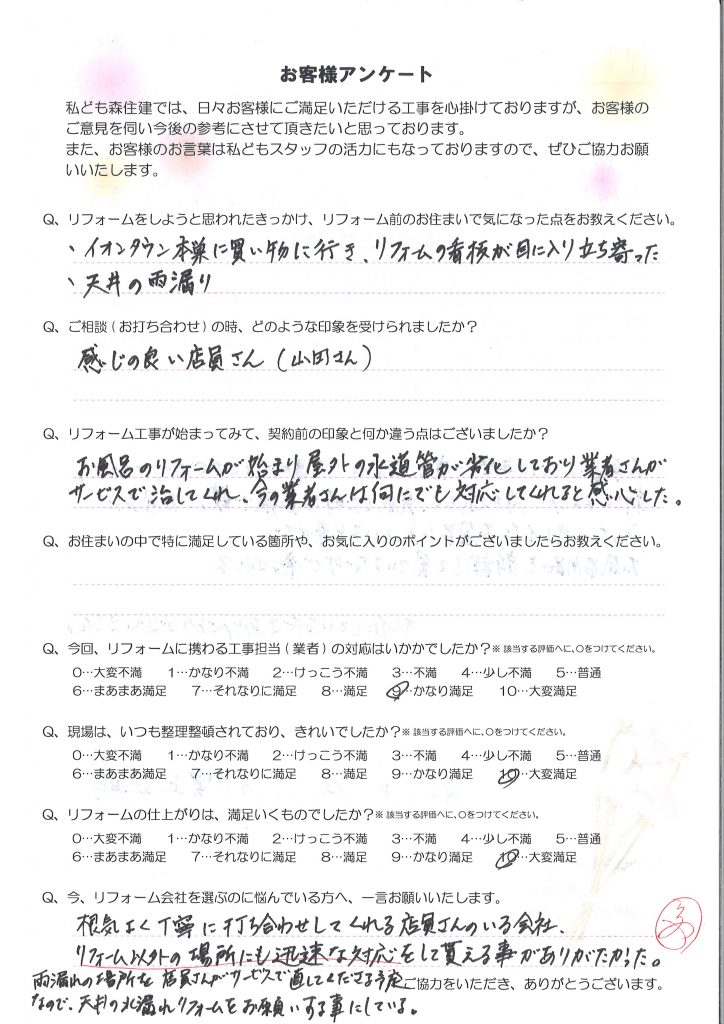 お客様アンケート
私ども森住建では、日々お客様にご満足いただける工事を心掛けておりますが、お客様の
ご意見を伺い今後の参考にさせて頂きたいと思っております。
また、お客様のお言葉は私どもスタッフの活力にもなっておりますので、ぜひご協力お願
いいたします。
Q、リフォームをしようと思われたきっかけ、リフォーム前のお住まいで気になった点をお教えください。
、イオンタウン本巣に買い物に行き、リフォームの看板が目に入り立ち寄った
、天井の雨漏り
Q、ご相談(お打ち合わせ)の時、どのような印象を受けられましたか?
感じの良い店員さん(山田さん)
Q、リフォーム工事が始まってみて、契約前の印象と何か違う点はございましたか?
お風呂のリフォームが始まり屋外の水道管が劣化しており業者さんが
サービスで治してくれ、今の業者さんは何にでも対応してくれると感心した。
Q、お住まいの中で特に満足している箇所や、お気に入りのポイントがございましたらお教えください。
Q、今回、リフォームに携わる工事担当(業者)の対応はいかかでしたか?※該当する評価へに、○をつけてください。
0…大変不満 1…かなり不満 2…けっこう不満 3…不満 4…少し不満 5…普通
6…まあまあ満足 7…それなりに満足 8…満足 9…かなり満足 10…大変満足
Q、現場は、いつも整理整頓されており、きれいでしたか?※該当する評価へに、○をつけてください。
0…大変不満 1…かなり不満 2…けっこう不満 3…不満 4…少し不満 5…普通
6…まあまあ満足 7…それなりに満足 8…満足 9…かなり満足 10…大変満足
Q、リフォームの仕上がりは、満足いくものでしたか?※該当する評価へに、○をつけてください。
0…大変不満 1…かなり不満 2…けっこう不満 3…不満 4…少し不満 5…普通
6…まあまあ満足 7…それなりに満足 8…満足 9…かなり満足 10…大変満足
Q、今、リフォーム会社を選ぶのに悩んでいる方へ、一言お願いいたします。
根気よく丁寧に打ち合わせしてくれる店員さんのいる会社、
リフォーム以外の場所にも迅速な対応をして貰える事がありがたかった。
雨漏れの場所を店員さんがサービスで直してくださる予定
ご協力をいただき、ありがとうございます。
なので、天井の水漏れリフォームをお願いする事にしている。